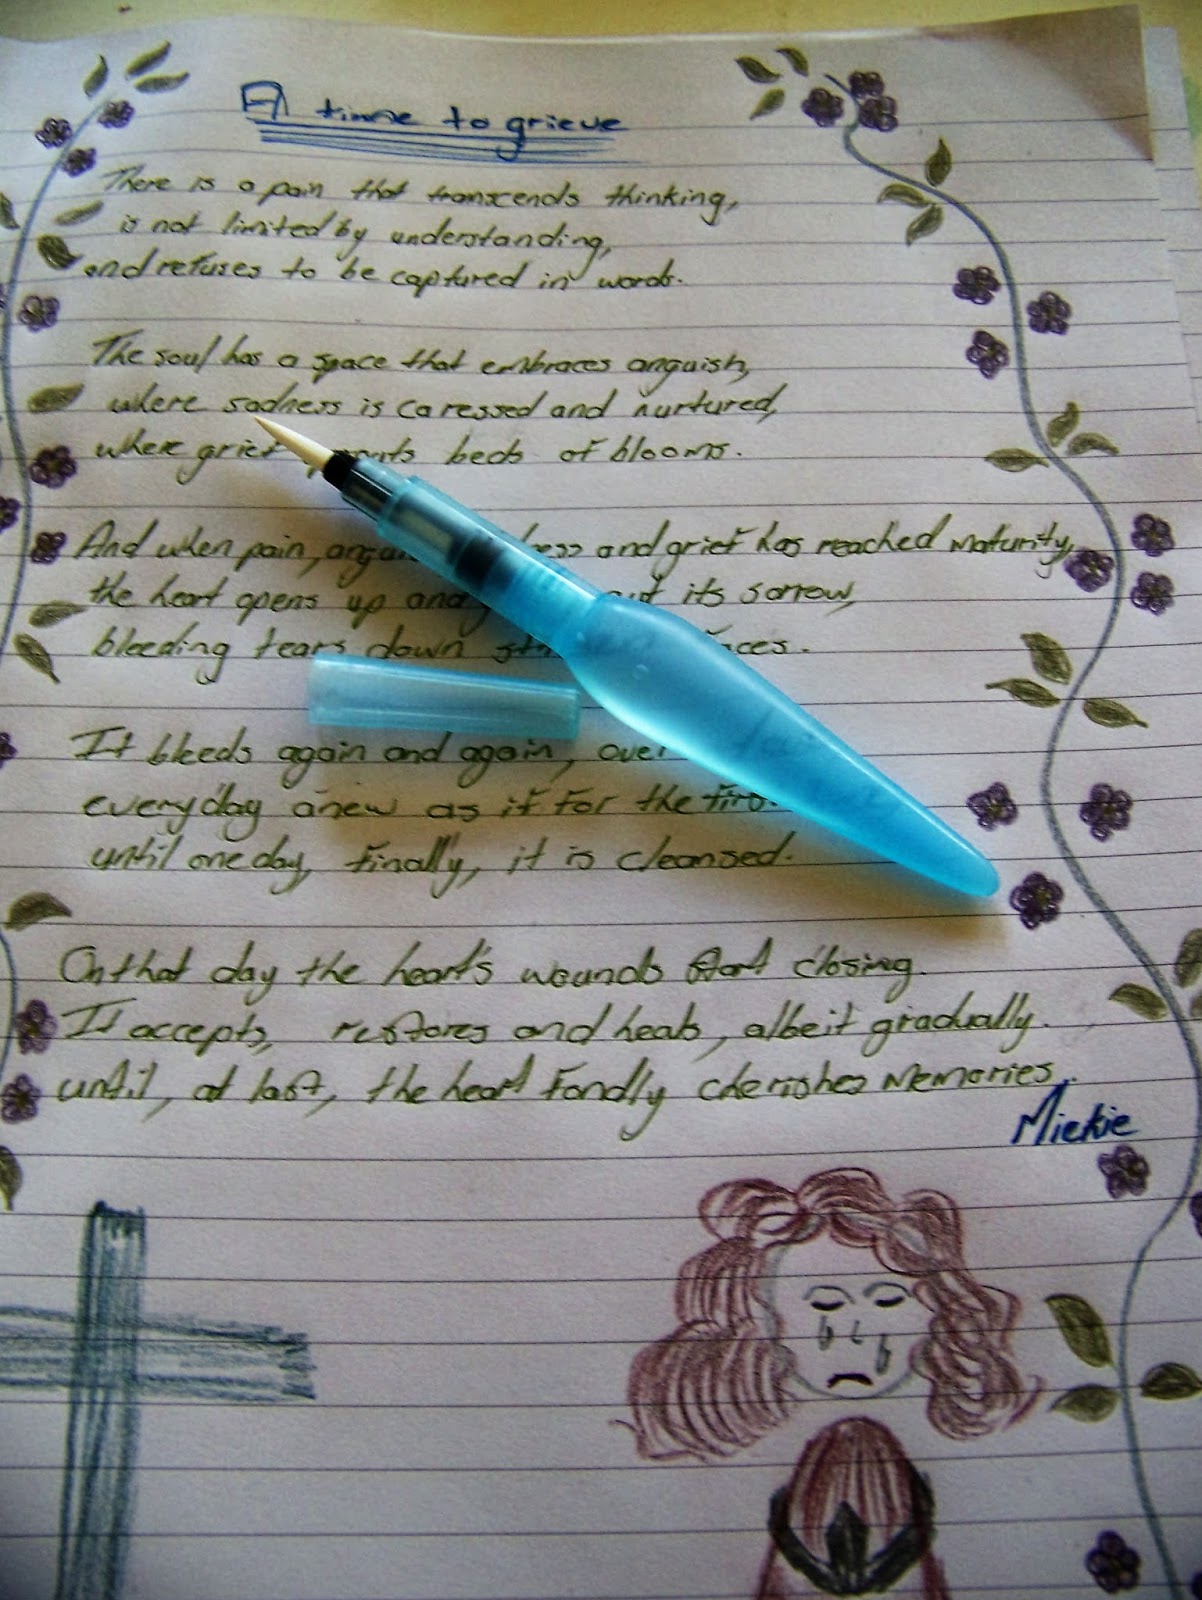 A time to grieve
There is a pain that transcends thinking,
is not limited by understanding,
and refuses to be captured in words.
The soul has a space that embraces anguish,
where sadness is caressed and nurtured,
where grief beds of blooms.
And when pain, and grief has reached maturity,
the heart opens up and its sorrow,
bleeding tears down
It bleeds again and again, over
everyday anew as if for the
until one day, finally, it is cleansed.
On that day the heart's wounds start closing.
It accepts, restores and heals, albeit gradually.
until, at last, the heart fondly cherishes memories.
Miekie